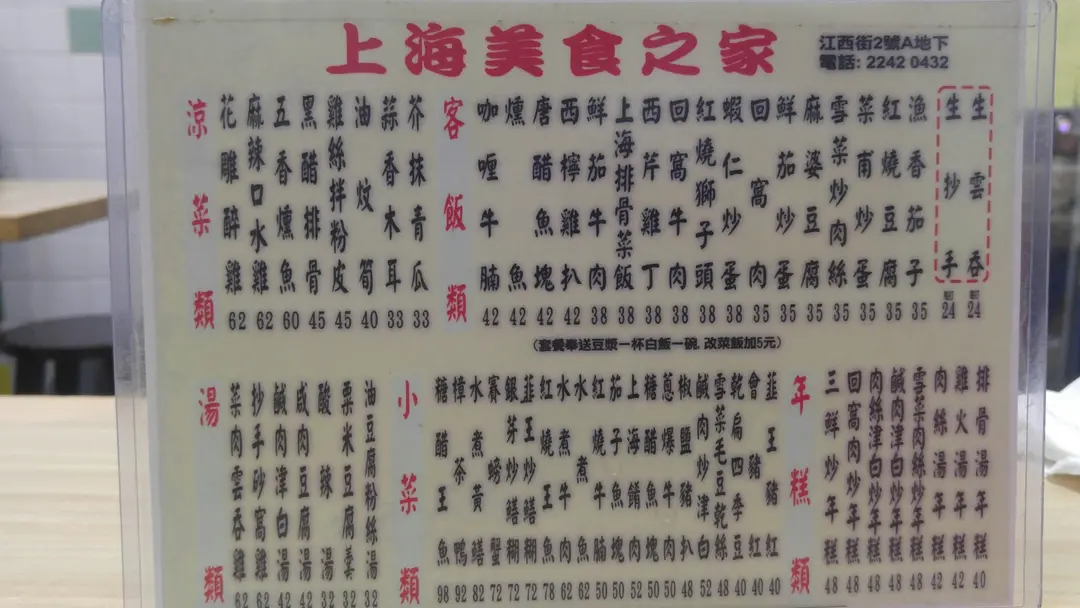 上海美食之家
江西街2號A地下
電話: 2242 0432
涼菜類
花雕醉雞 62
麻辣口水雞 62
五香燻魚 60
黑醋排骨 45
雞絲拌粉皮 45
油炆筍 40
蒜香木耳 33
芥抹青瓜 33
客飯類
咖喱牛腩 42
燻魚 42
唐醋魚塊 42
西檸雞扒 42
鮮茄牛肉 38
上海排骨菜飯 38
西芹雞丁 38
回窩牛肉 38
紅燒獅子頭 38
蝦仁炒蛋 38
回窩肉 35
鮮茄炒蛋 35
麻婆豆腐 35
雪菜炒肉絲 35
菜甫炒蛋 35
紅燒豆腐 35
漁香茄子 35
生抄手 24
生雲吞 24
(套餐奉送豆漿一杯白飯一碗, 改菜飯加5元)
湯類
菜肉雲吞雞 62
抄手砂窩雞 62
鹹肉津白湯 42
咸肉豆腐湯 42
酸辣湯 32
粟米豆腐羹 32
油豆腐粉絲湯 32
小菜類
糖醋王魚 98
樟茶鴨 92
水煮黃鱔 82
賽螃蟹 72
銀芽炒鱔糊 72
韮王炒鱔糊 72
紅燒王魚 78
水煮牛肉 62
水煮魚 62
紅燒牛腩 50
茄子魚塊 50
上海鯖肉 52
糖醋魚塊 50
蔥爆牛肉 50
椒鹽豬扒 48
鹹肉炒津白 52
雪菜毛豆乾絲 48
乾扁四季豆 40
會豬紅 40
韮王豬紅 40
年糕類
三鮮炒年糕 48
回窩肉炒年糕 48
肉絲津白炒年糕 48
鹹肉津白炒年糕 48
雪菜肉絲炒年糕 48
肉絲湯年糕 42
雞火湯年糕 42
排骨湯年糕 40